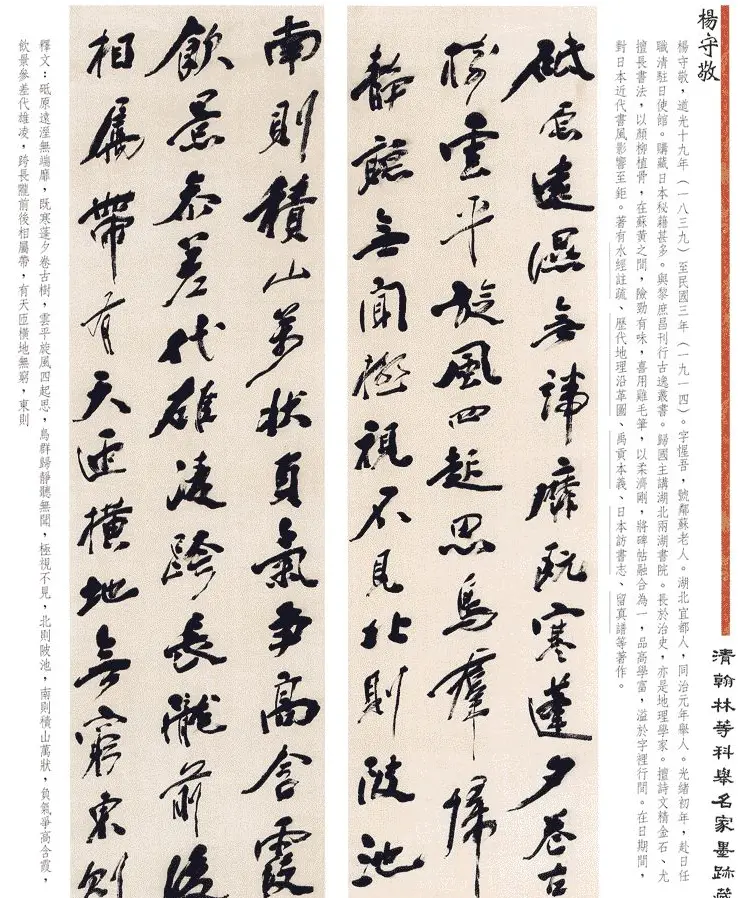 清翰林等科舉名家墨跡
楊守敬
楊守敬，道光十九年（一八三九）至民國三年（一九一四）。字惺吾，號鄰蘇老人。湖北宜都人，同治元年舉人。光緒初年，赴日任
職清駐日使館。購藏日本秘籍甚多。與黎庶昌刊行古逸叢書。歸國主講湖北兩湖書院。長於治史，亦是地理學家。擅詩文精金石、尤
擅長書法，以顏柳植骨，在蘇黃之間，險勁有味，喜用雞毛筆，以柔濟剛，將碑帖融合為一，品高學富，溢於字裡行間。在日期間，
對日本近代書風影響至鉅。著有水經註疏、歷代地理沿革圖、禹貢本義、日本訪書志、留真譜等著作。
砥原遠濕無端靡既寒蓬夕卷古
樹雲平旋風四起思鳥羣歸
靜聽無聞極視不見北則陂池
南則積山萬狀負氣爭高含霞
飲景參差代雄淩跨長隴前後
相屬帶有天匝橫地無窮東則
釋文：砥原遠溼無端靡，既寒蓬夕卷古樹，雲平旋風四起思，鳥群歸靜聽無聞，極視不見，北則陂池，南則積山萬狀，負氣爭高含霞，
飲景參差代雄凌，跨長隴前後相屬帶，有天匝橫地無窮，東則